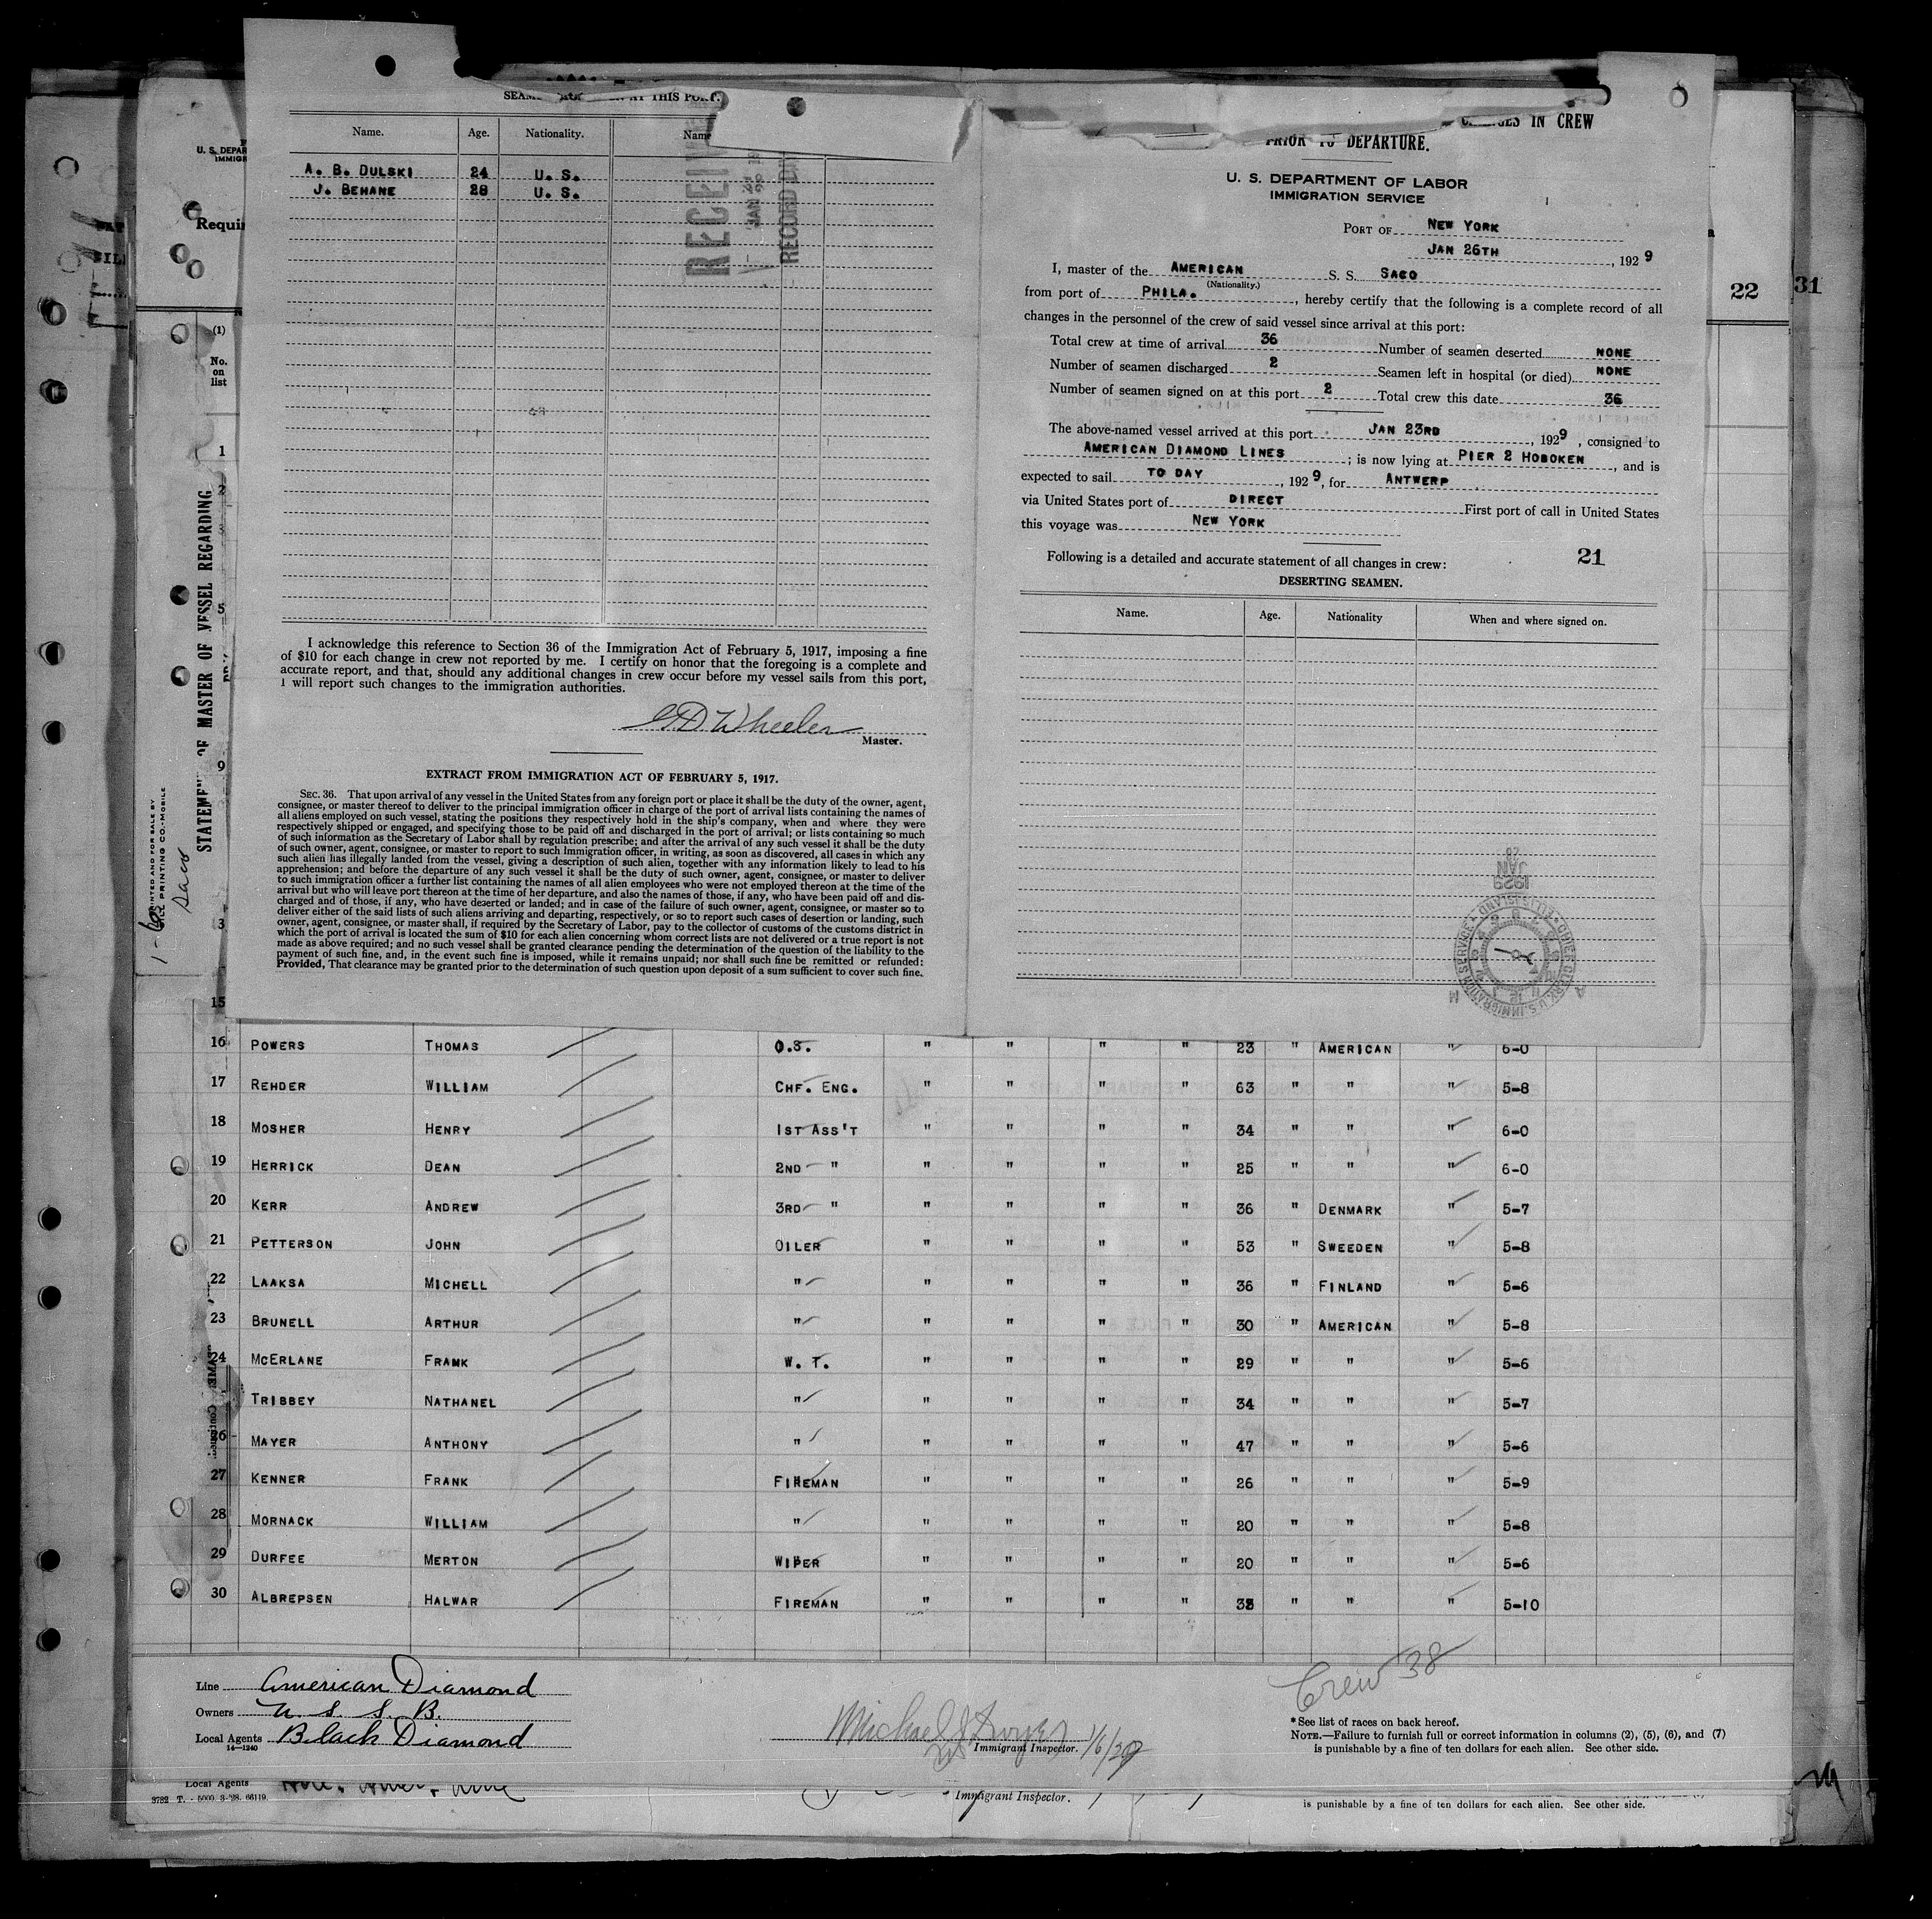 SEAM
AT THIS PORT.
Name. Age. Nationality. Name
A. B. DULSKI 24 U. S.
J. BEHANE 28 U. S.
RECEIV
JAN
RECORD DI
I acknowledge this reference to Section 36 of the Immigration Act of February 5, 1917, imposing a fine
of $10 for each change in crew not reported by me. I certify on honor that the foregoing is a complete and
accurate report, and that, should any additional changes in crew occur before my vessel sails from this port,
I will report such changes to the immigration authorities.
G.D. Wheeler
Master.
EXTRACT FROM IMMIGRATION ACT OF FEBRUARY 5, 1917.
SEC. 36. That upon arrival of any vessel in the United States from any foreign port or place it shall be the duty of the owner, agent,
consignee, or master thereof to deliver to the principal immigration officer in charge of the port of arrival lists containing the names of
all aliens employed on such vessel, stating the positions they respectively hold in the ship's company, when and where they were
respectively shipped or engaged, and specifying those to be paid off and discharged in the port of arrival; or lists containing so much
of such information as the Secretary of Labor shall by regulation prescribe; and after the arrival of any such vessel it shall be the duty
of such owner, agent, consignee, or master to report to such Immigration officer, in writing, as soon as discovered, all cases in which any
such alien has illegally landed from the vessel, giving a description of such alien, together with any information likely to lead to his
apprehension; and before the departure of any such vessel it shall be the duty of such owner, agent, consignee, or master to deliver
to such immigration officer a further list containing the names of all alien employees who were not employed thereon at the time of the
arrival but who will leave port thereon at the time of her departure, and also the names of those, if any, who have been paid off and dis-
charged and of those, if any, who have deserted or landed; and in case of the failure of such owner, agent, consignee, or master so to
deliver either of the said lists of such aliens arriving and departing, respectively, or so to report such cases of desertion or landing, such
owner, agent, consignee, or master shall, if required by the Secretary of Labor, pay to the collector of customs of the customs district in
which the port of arrival is located the sum of $10 for each alien concerning whom correct lists are not delivered or a true report is not
made as above required; and no such vessel shall be granted clearance pending the determination of the question of the liability to the
payment of such fine, and, in the event such fine is imposed, while it remains unpaid; nor shall such fine be remitted or refunded:
Provided, That clearance may be granted prior to the determination of such question upon deposit of a sum sufficient to cover such fine.
CHANGES IN CREW
PRIOR TO DEPARTURE.
U. S. DEPARTMENT OF LABOR
IMMIGRATION SERVICE
PORT OF NEW YORK
JAN 26TH, 1929
I, master of the AMERICAN S. S. SACO
(Nationality.)
from port of PHILA., hereby certify that the following is a complete record of all
changes in the personnel of the crew of said vessel since arrival at this port:
Total crew at time of arrival 36 Number of seamen deserted NONE
Number of seamen discharged 2 Seamen left in hospital (or died) NONE
Number of seamen signed on at this port 2 Total crew this date 36
The above-named vessel arrived at this port JAN 23RD, 1929, consigned to
AMERICAN DIAMOND LINES; is now lying at PIER 2 HOBOKEN, and is
expected to sail TO DAY, 1929, for ANTWERP
via United States port of DIRECT First port of call in United States
this voyage was NEW YORK
Following is a detailed and accurate statement of all changes in crew: 21
DESERTING SEAMEN.
Name. Age. Nationality When and where signed on.
28
JAN
1929
CHIEF CLERK U.S. IMMIGRATION SERVICE ELLIS ISLAND
22
31
U. S. DEPAR
IMMIGR
Requir
(1)
No.
on
list
1
2
3
5
9
3
15
STATEMENT OF MASTER OF VESSEL REGARDING
PRINTED AND FOR SALE BY
GILL PRINTING CO.-MOBILE
Saco
16 POWERS THOMAS O.S. " " " " 23 " AMERICAN " 6-0
17 REHDER WILLIAM CHF. ENG. " " " " 63 " " " 5-8
18 MOSHER HENRY 1ST ASS'T " " " " 34 " " " 6-0
19 HERRICK DEAN 2ND " " " " " 25 " " " 6-0
20 KERR ANDREW 3RD " " " " " 36 " DENMARK " 5-7
21 PETTERSON JOHN OILER " " " " 53 " SWEEDEN " 5-8
22 LAAKSA MICHELL " " " " " 36 " FINLAND " 5-6
23 BRUNELL ARTHUR " " " " " 30 " AMERICAN " 5-8
24 MCERLANE FRANK W. T. " " " " 29 " " " 5-6
TRIBBEY NATHANEL " " " " " 34 " " " 5-7
26 MAYER ANTHONY " " " " " 47 " " " 5-6
27 KENNER FRANK FIREMAN " " " " 26 " " " 5-9
28 MORNACK WILLIAM " " " " " 20 " " " 5-8
29 DURFEE MERTON WIPER " " " " 20 " " " 5-6
30 ALBREPSEN HALWAR FIREMAN " " " " 38 " " " 5-10
Crew 38
Line American Diamond
Owners U. S. S. B.
Local Agents Black Diamond
14-1240
Michael J
Immigrant Inspector. 1/6/29
*See list of races on back hereof.
NOTE.—Failure to furnish full or correct information in columns (2), (5), (6), and (7)
is punishable by a fine of ten dollars for each alien. See other side.
Local Agents
3782 T. - 5000 3-'28. 66119.
Immigrant Inspector.
is punishable by a fine of ten dollars for each alien. See other side.